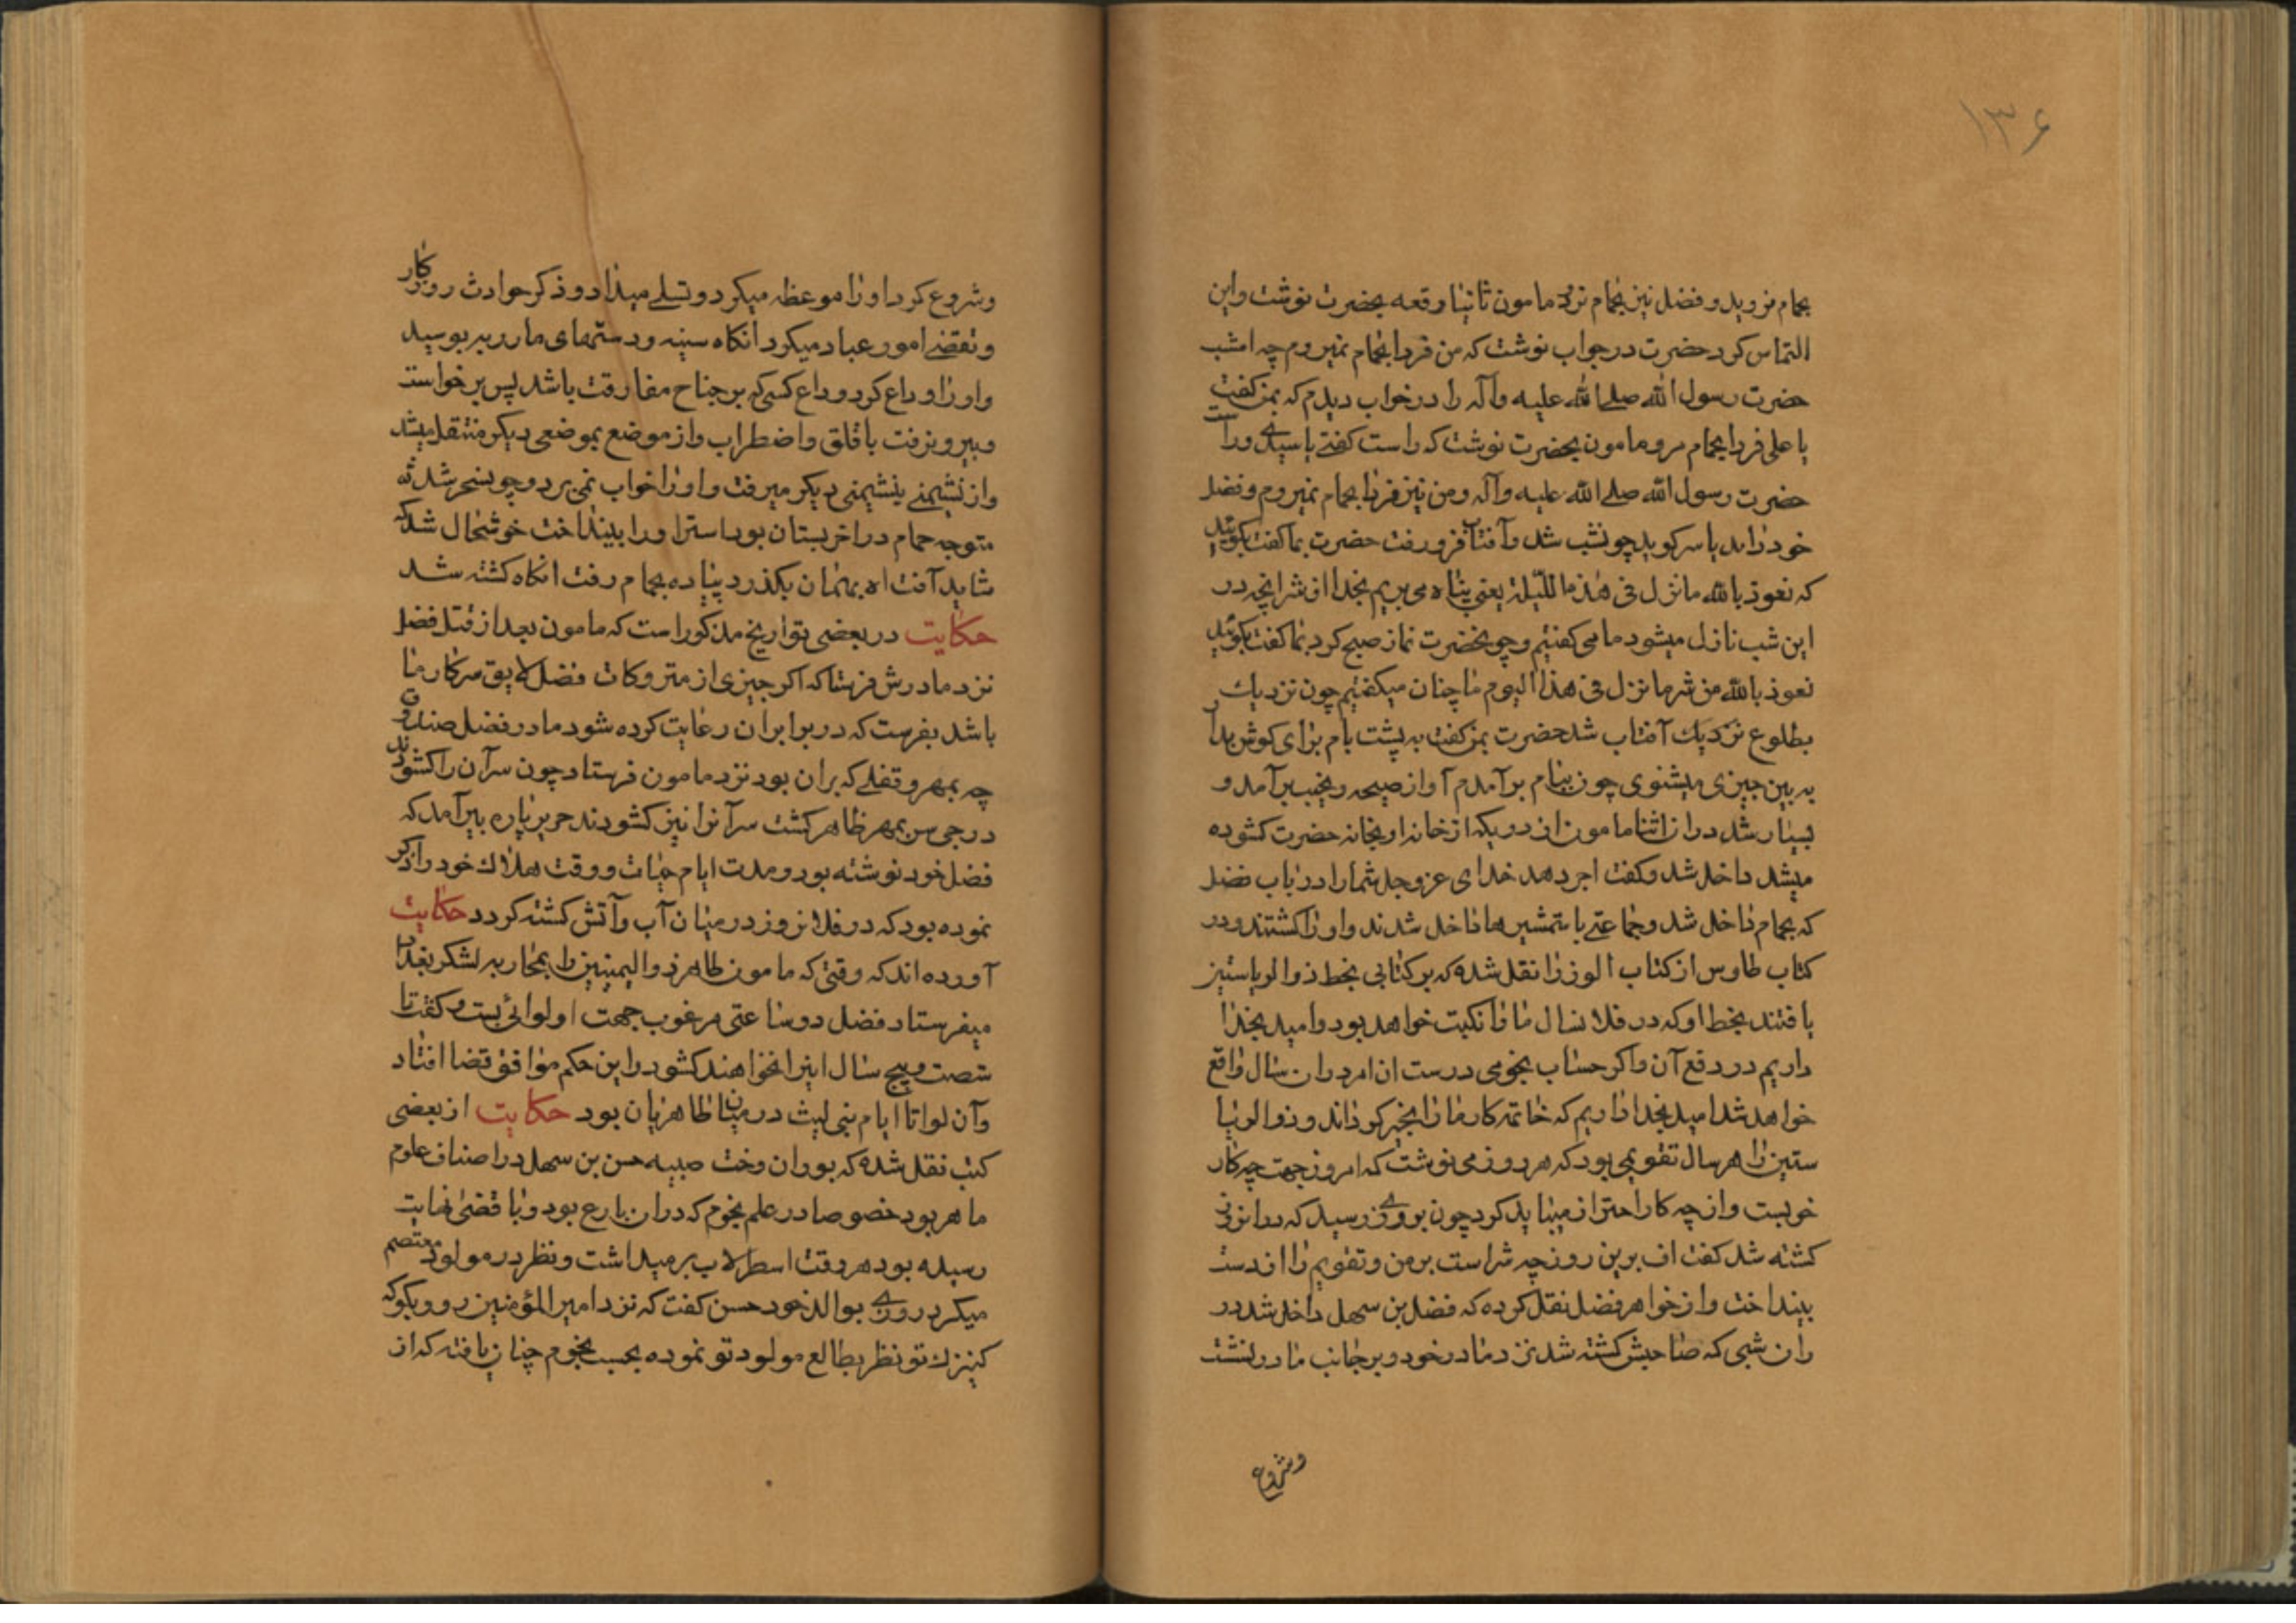 ۱۳۶
بحمام نروید و فضل نیز بحمام نرود مامون ثانیا رقعه بحضرت نوشت و این
التماس کرد حضرت در جواب نوشت که من فردا بحمام نمیروم چه امشب
حضرت رسول الله صلی الله علیه وآله را در خواب دیدم که بمن کفت
یا علی فردا بحمام مرو مامون بحضرت نوشت که راست کفتی یا سیدی و راست
حضرت رسول الله صلی الله علیه وآله و من نیز فردا بحمام نمیروم و فضل
خود داند یاسر کوید چون شب شد و آفتاب فرو رفت حضرت بما کفت بکوئید
که نعوذ بالله ما نزل فی هذه اللیلة یعنی پناه می بریم بخدا از شر انچه در
این شب نازل میشود ما می کفتیم و چون حضرت نماز صبح کرد بما کفت بکوئید
نعوذ بالله من شر ما نزل فی هذا الیوم ما چنان میکفتیم چون نزدیك
بطلوع نزدیك آفتاب شد حضرت بمن کفت به پشت بام برای کوش بدار
به بین چیزی میشنوی چون ببام برآمدم آواز صیحه و نحیب برآمد و
بسیار شد در ان اثنا مامون از در یکه از خانه او بخانه حضرت کشوده
میشد داخل شد و کفت اجر دهد خدای عز وجل شما را در باب فضل
که بحمام داخل شد و جماعتی با شمشیرها داخل شدند و او را کشتند و در
کتاب طاوس از کتاب الوزرا نقل شده که بر کتابی بخط ذوالریاستین
یافتند بخط او که در فلان سال ما را نکبت خواهد بود و امید بخدا
داریم در دفع آن و اکر حساب نجومی درست ان امر در ان سال واقع
خواهد شد امید بخدا داریم که خاتمه کار ما را بخیر کرداند و ذوالریا
ستین را هر سال تقویمی بود که هر روز می نوشت که امروز جهت چه کار
خوبست و از چه کار احتراز میباید کرد چون بروزی رسید که در انروز
کشته شد کفت اف برین روز چه شر است بر من و تقویم را از دست
بینداخت و از خواهر فضل نقل کرده که فضل بن سهل داخل شد در
ان شبی که صباحش کشته شد نزد مادر خود و بر جانب مادر نشت
وشروع
وشروع کرد او را موعظه میکرد و تسلی میداد و ذکر حوادث روزکار
و تقضی امور عباد میکرد انکاه سینه و دستهای مادر ببوسید
و او را وداع کرد وداع کسی که بر جناح مفارقت باشد پس برخواست
و بیرون رفت با قلق و اضطراب و از موضع بموضعی دیکر منتقل میشد
و از نشیمنی بنشیمنی دیکر میرفت و او را خواب نمی برد و چون سحر شد
متوجه حمام در اخر بستان بود استر او را بینداخت خوشحال شد که
شاید آفت او بهمان بکذرد پیاده بحمام رفت انکاه کشته شد
حکایت در بعضی تواریخ مذکور است که مامون بعد از قتل فضل
نزد مادرش فرستاد که اکر چیزی از متروکات فضل لایق سرکار ما
باشد بفرست که در برابر ان رعایت کرده شود مادر فضل صندوق
چه بمهر و قفلی که بران بود نزد مامون فرستاد چون سر آن را کشودند
درجی سر بمهر ظاهر کشت سر آنرا نیز کشودند حریر پاره بیرآمد که
فضل خود نوشته بود و مدت ایام حیات و وقت هلاك خود را ذکر
نموده بود که در فلان روز در میان آب و آتش کشته کردد حکایت
آورده اند که وقتی که مامون طاهر ذوالیمینین را بمحاربه لشکر بغداد
میفرستاد فضل دو ساعتی مرغوب جهت او لوائی بست و کفت تا
شصت و پنج سال اینرا نخواهند کشود و این حکم موافق قضا افتاد
و آن لوا تا ایام بنی لیث در میان طاهریان بود حکایت از بعضی
کتب نقل شده که بوران دخت صبیه حسن بن سهل در اصناف علوم
ماهر بود خصوصا در علم نجوم که در ان بارع بود و باقصی نهایت
رسیده بود هر وقت اسطرلاب برمیداشت و نظر در مولود معتصم
میکرد روزی بوالد خود حسن کفت که نزد امیر المؤمنین رو و بکو که
کنیزك تو نظر بطالع مولود تو نموده بحسب نجوم چنان یافته که از